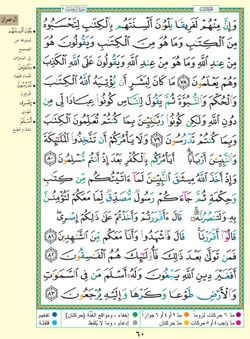 آل عمران
وَإِنَّ مِنْهُمْ لَفَرِيقًا يَلْوُۥنَ أَلْسِنَتَهُم بِٱلْكِتَٰبِ لِتَحْسَبُوهُ
مِنَ ٱلْكِتَٰبِ وَمَا هُوَ مِنَ ٱلْكِتَٰبِ وَيَقُولُونَ هُوَ
مِنْ عِندِ ٱللَّهِ وَمَا هُوَ مِنْ عِندِ ٱللَّهِ وَيَقُولُونَ عَلَى ٱللَّهِ ٱلْكَذِبَ
وَهُمْ يَعْلَمُونَ ٧٨ مَا كَانَ لِبَشَرٍ أَن يُؤْتِيَهُ ٱللَّهُ ٱلْكِتَٰبَ
وَٱلْحُكْمَ وَٱلنُّبُوَّةَ ثُمَّ يَقُولَ لِلنَّاسِ كُونُوا۟ عِبَادًا لِّى مِن
دُونِ ٱللَّهِ وَلَٰكِن كُونُوا۟ رَبَّٰنِيِّۦنَ بِمَا كُنتُمْ تُعَلِّمُونَ ٱلْكِتَٰبَ
وَبِمَا كُنتُمْ تَدْرُسُونَ ٧٩ وَلَا يَأْمُرَكُمْ أَن تَتَّخِذُوا۟ ٱلْمَلَٰٓئِكَةَ
وَٱلنَّبِيِّۦنَ أَرْبَابًا أَيَأْمُرُكُم بِٱلْكُفْرِ بَعْدَ إِذْ أَنتُم مُّسْلِمُونَ ٨٠
وَإِذْ أَخَذَ ٱللَّهُ مِيثَٰقَ ٱلنَّبِيِّۦنَ لَمَآ ءَاتَيْتُكُم مِّن كِتَٰبٍ
وَحِكْمَةٍ ثُمَّ جَآءَكُمْ رَسُولٌ مُّصَدِّقٌ لِّمَا مَعَكُمْ لَتُؤْمِنُنَّ
بِهِۦ وَلَتَنصُرُنَّهُۥ قَالَ ءَأَقْرَرْتُمْ وَأَخَذْتُمْ عَلَىٰ ذَٰلِكُمْ إِصْرِى
قَالُوٓا۟ أَقْرَرْنَا قَالَ فَٱشْهَدُوا۟ وَأَنَا۠ مَعَكُم مِّنَ ٱلشَّٰهِدِينَ ٨١
فَمَن تَوَلَّىٰ بَعْدَ ذَٰلِكَ فَأُو۟لَٰٓئِكَ هُمُ ٱلْفَٰسِقُونَ ٨٢
أَفَغَيْرَ دِينِ ٱللَّهِ يَبْغُونَ وَلَهُۥٓ أَسْلَمَ مَن فِى ٱلسَّمَٰوَٰتِ
وَٱلْأَرْضِ طَوْعًا وَكَرْهًا وَإِلَيْهِ يُرْجَعُونَ ٨٣
مدّ ٦ حركات لزوماً
مدّ ٢ أو ٤ أو ٦ جوازاً
إخفاء، ومواقع الغنّة (حركتان)
تفخيم
مدّ واجب ٤ أو ٥ حركات
مدّ حركتان
إدغام، وما لا يُلفظ
قلقلة
٦٠